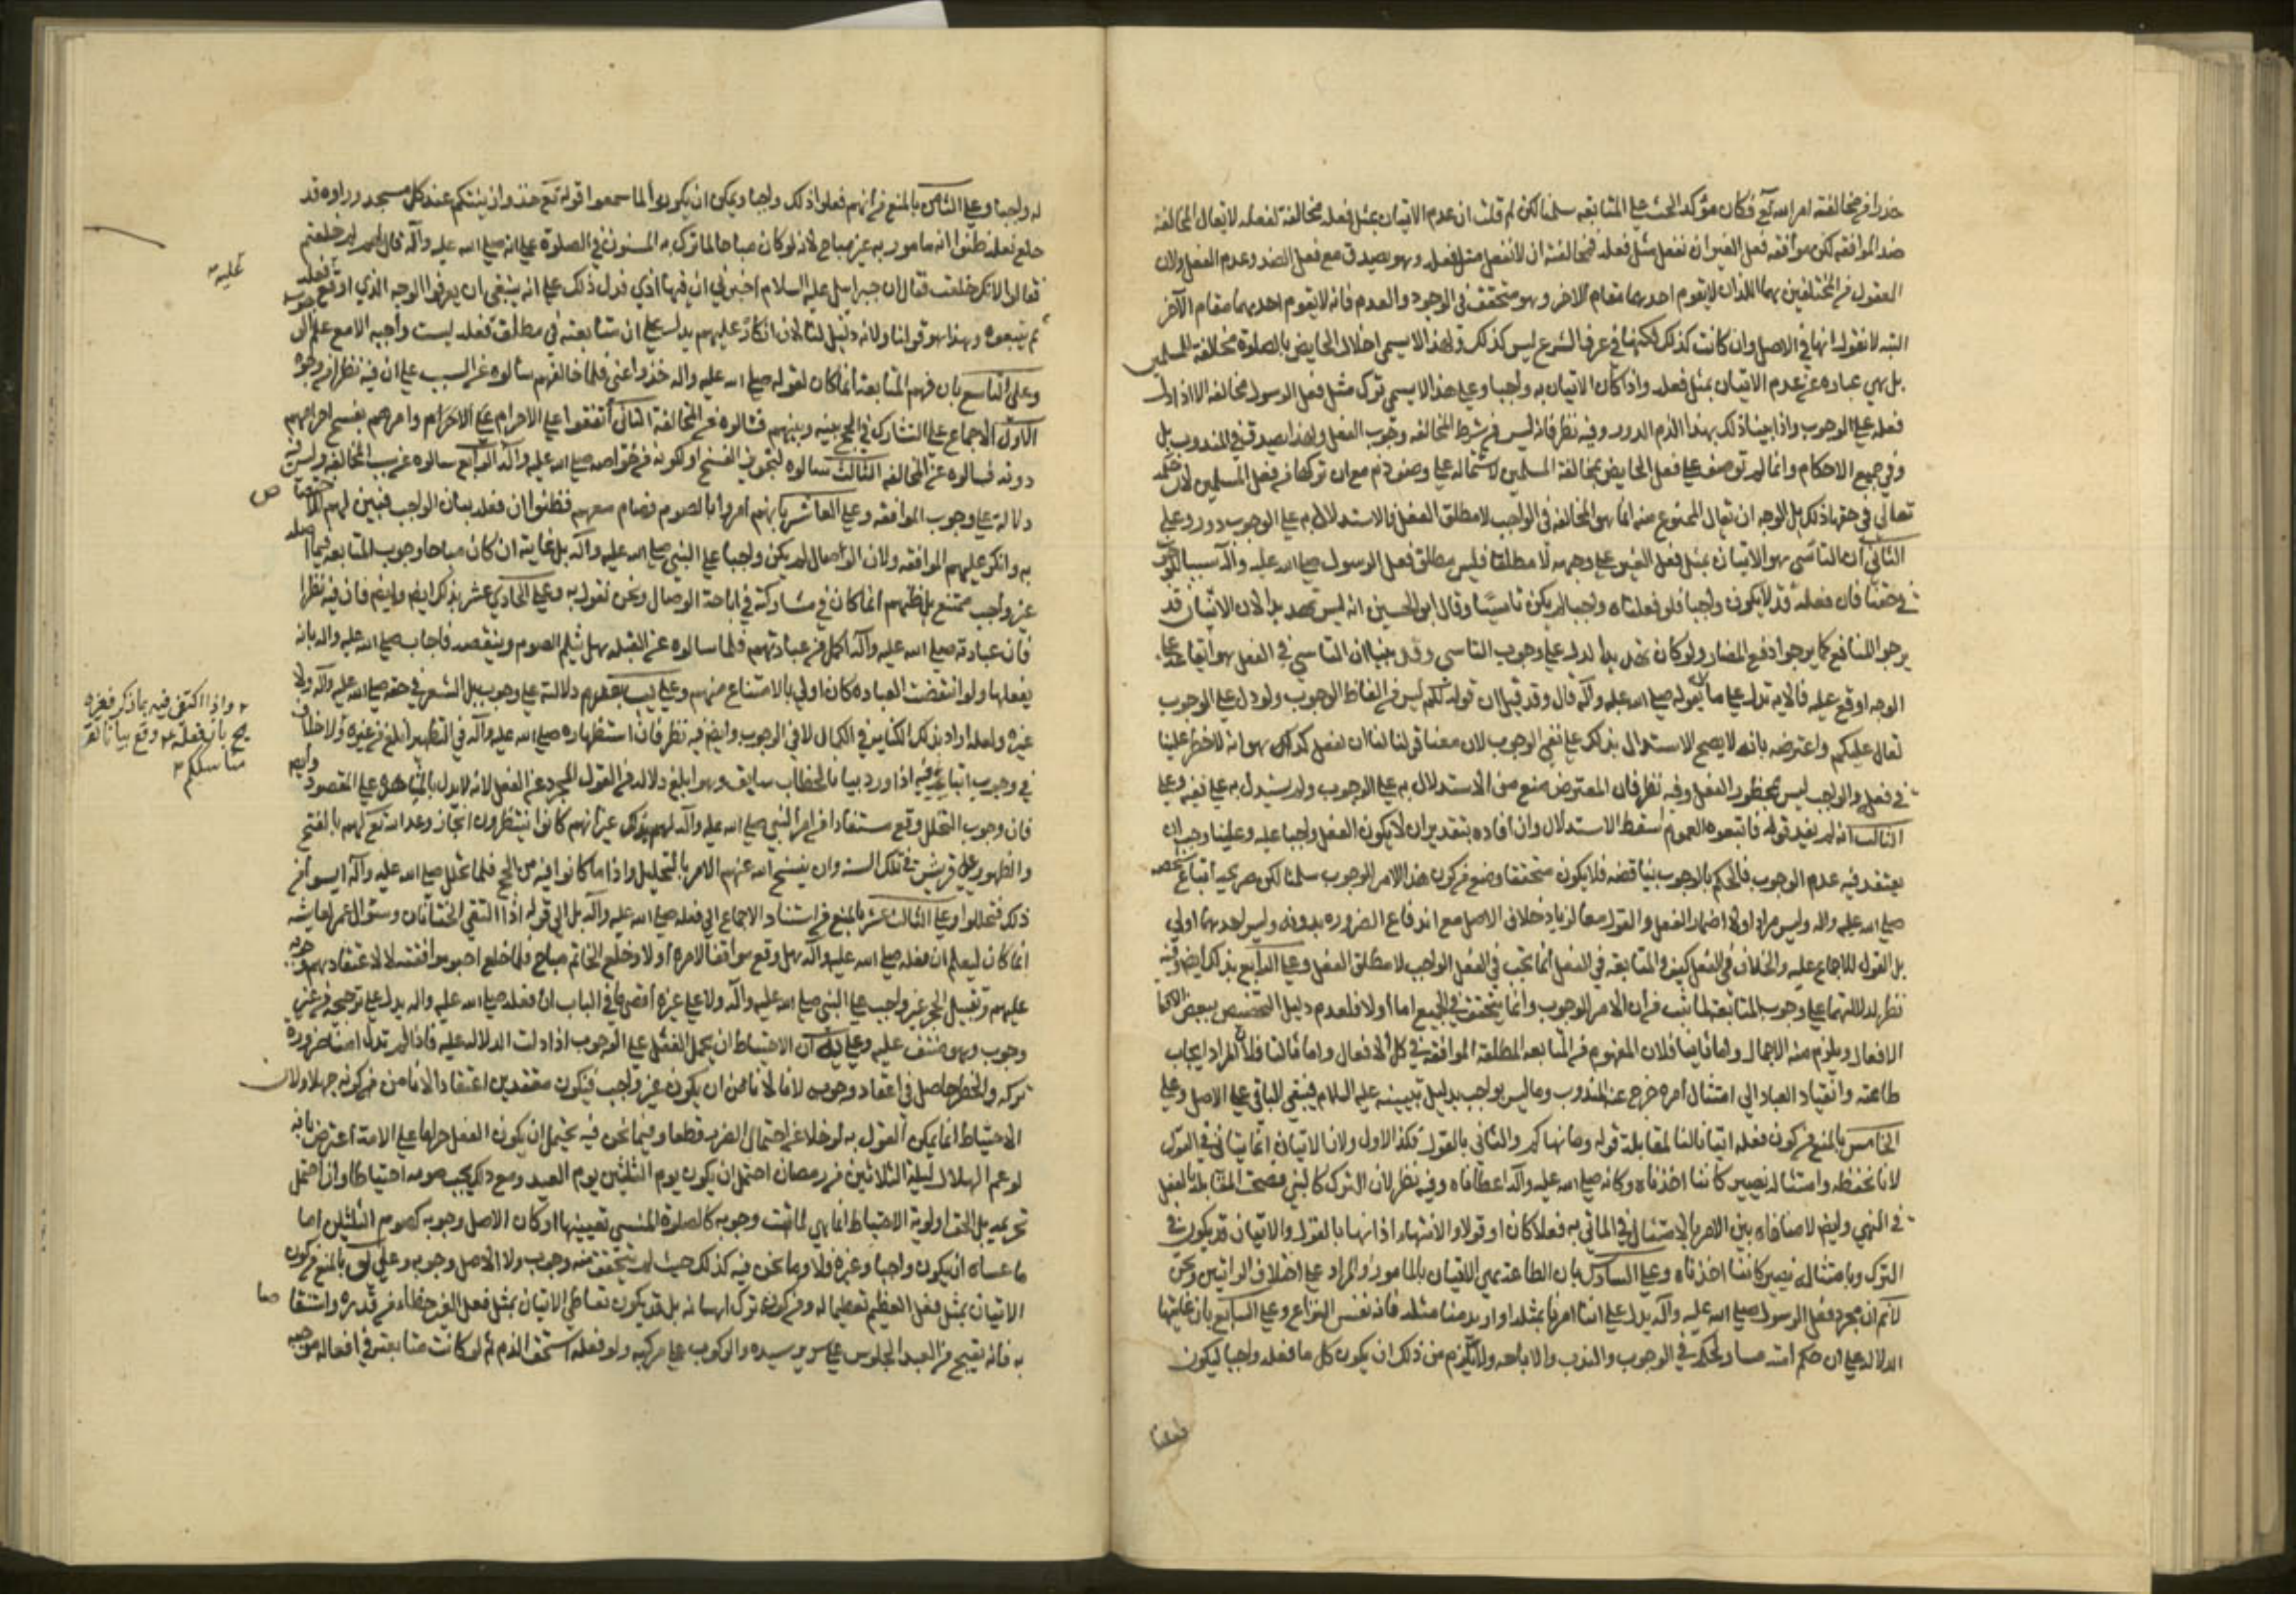 حذرا من مخالفته امر الله تع فكان مؤكد الحث على المتابعه سلمنا لكن لم قلت ان عدم الاتيان بمثل فعله مخالفة لفعله لا يقال المخالفة
ضد الموافقه لكن موافقه فعل الغير ان تفعل مثل فعله فمخالفته ان لا تفعل مثل فعله وهو يصدق مع فعل الضد وعدم الفعل ولان
المعقول من المختلفين هما اللذان لا يقوم احدهما مقام الاخر وهو متحقق في الوجود والعدم فانه لا يقوم احدهما مقام الآخر
البته لانا نقول انها في الاصل وان كانت كذلك لكنها في عرف الشرع ليس كذلك ولهذا لا يسمى اخلال الحايض بالصلوة مخالفة للمسلمين
بل هي عباره عن عدم الاتيان بمثل فعله واذا كان الاتيان به واجبا وعلى هذا لا يسمى ترك مثل فعل الرسول مخالفه الا اذا دل
فعله على الوجوب واذا بينا ذلك بهذا لزم الدور وفيه نظر فانه ليس من شرط المخالفه وجوب الفعل ولهذا يصدق في المندوب بل
وفي جميع الاحكام وانما لم توصف على فعل الحايض بمخالفة المسلمين لاشتماله على وصف ذم مع ان تركها من فعل المسلمين لان
تعالى في حقها ذلك بل الوجه ان يقال الممنوع منه انما هو المخالفه في الواجب لا مطلق الفعل والاستدلال به على الوجوب دور وعلى
الثاني ان التاسي هو الاتيان بمثل فعل الغير على وجهه لا مطلقا فليس مطلق فعل الرسول صلى الله عليه وآله سببا للوجوب
في حقنا فان فعله قد لا يكون واجبا فلو فعلناه واجبا لم يكن تاسيا وقال ابو الحسين انه ليس تهديدا لان الانسان قد
يرجوا المنافع كما يرجوا دفع المضار ولو كان تهديدا لدل على وجوب التاسي وقد بينا ان التاسي في الفعل هو ايقاعه على
الوجه اوقع عليه فالايه تدل على ما نقوله صلى الله عليه وآله قال وقد قيل ان قوله لكم ليس من الفاظ الوجوب ولو دل على الوجوب
لقال عليكم واعترضه بانه لا يصح الاستدلال بذلك على نفي الوجوب لان معنا قولنا لنا ان نفعل كذا هو انه لا خطر علينا
في فعله والواجب ليس محظور الفعل وفيه نظر فان المعترض منع من الاستدلال به على الوجوب ولم يستدل به على نفيه وعلى
الثالث انه لم يفيد قوله فاتبعوه العموم سقط الاستدلال وان افاده بتقدير ان لا يكون الفعل واجبا عليه وعلينا وجب ان
يعتقد فيه عدم الوجوب فالحكم بالوجوب يناقضه فلا يكون متحققا ومنع من كون هذا الامر للوجوب سلمنا لكن صريحه اتباع شخصه
صلى الله عليه واله وليس مرادا ولا اضمار الفعل والقول معا لزيادة خلاف الاصل مع اندفاع الضروره بدونه وليس احدهما اولى
بل القول للاجماع عليه والخلاف في الفعل كيف والمتابعه في الفعل انما تجب في الفعل الواجب لا مطلق الفعل وعلى الرابع بذلك ايضا وفيه
نظر لدلالتهما على وجوب المتابعة لما ثبت من ان الامر للوجوب وانما يتحقق في الجميع اما اولا فلعدم دليل التخصيص ببعض
الافعال ويلزم منه الاجمال واما ثانيا فلان المفهوم من المتابعه المطلقة الموافقه في كل الافعال واما ثالثا فلان المراد ايجاب
طاعته وانقياد العباد الى امتثال امره خرج عنه المندوب وما ليس بواجب بدليل تبيينه عليه السلام فيبقى الباقي على الاصل وعلى
الخامس بالمنع من كون فعله اتيانا لنا لمقابلته قوله وما نهاكم والثاني بالقول فكذا الاول ولان الاتيان انما يتاتى في القول
لانا نحفظه وامتثاله نصير كاننا اخذناه وكانه صلى الله عليه وآله اعطاناه وفيه نظر لان الترك كالنهي فصحت المقابله بالفعل
في النهي وايضا لا منافاه بين الامر بالامتثال في الماتي به فعلا كان او قولا والانتهاء اذا نها بالقول والاتيان قد يكون في
الترك وبامتثاله نصير كاننا اخذناه وعلى السادس بان الطاعة هي الاتيان بالمامور والمراد على اختلاف الرايين ونحن
لا نم ان مجرد فعل الرسول صلى الله عليه وآله يدل على انا امرنا بمثله او اريد منا مثله فانه نفس النزاع وعلى السابع بان غايتها
الدلاله على ان حكم امته مساو لحكمه في الوجوب والندب والاباحه ولا يلزم من ذلك ان يكون كل ما فعله واجبا ليكون
فعلنا
له واجبا وعلى الثامن بالمنع من انهم فعلوا ذلك واجبا ويمكن ان يكونوا لما سمعوا قوله تع خذوا زينتكم عند كل مسجد وراوه قد
خلع نعله ظنوا انه مامور به غير مباح لانه لو كان مباحا لما ترك به المسنون في الصلوة على انه صلى الله عليه وآله قال لهم لم خلعتم
فقالوا لانك خلعت فقال ان جبرائيل عليه السلام اخبرني ان فيها اذى فدل ذلك على انه ينبغي ان يعرفوا الوجه الذي اوقع فعله
ثم يتبعوه وهذا هو قولنا ولانه دليل لنا لان انكاره عليهم يدل على ان متابعته في مطلق فعله ليست واجبه الا مع علم الوجوب
وعلى التاسع بان فهم المتابعة انما كان لقوله صلى الله عليه واله خذوا عني فلما خالفهم سالوه عن السبب على ان فيه نظرا من وجوه
الاول الاجماع على التشارك في الحج بينه وبينهم فسالوه عن المخالفة الثاني اتفقوا على الاحرام وامرهم بفسخ احرامهم
دونه فسالوه عن المخالفه الثالث سالوه لتجويز الفسخ او لكونه من خواصه صلى الله عليه وآله الرابع سالوه عن سبب المخالفه وليس فيه
دلالة على وجوب الموافقه وعلى العاشر بانهم امروا بالصوم وصام معهم فظنوا ان فعله بيان الواجب فبين لهم
به وانكر عليهم الموافقه ولان الوصال لم يكن واجبا على النبي صلى الله عليه وآله بل غايته ان كان مباحا ووجوب المتابعه فيما اصله
غير واجب ممتنع بل ظنهم انما كان في مشاركته في اباحة الوصال ونحن نقول به وعلى الحادي عشر بذلك ايضا وايضا فان فيه نظرا
فان عبادته صلى الله عليه وآله اكمل من عبادتهم فلما سالوه عن القبله هل تثلم الصوم وينقصه فاجاب صلى الله عليه واله بانه
يفعلها ولو انتقضت العباده كان اولى بالامتناع منهم وعلى عدم دلالته على وجوب بل الشعر في حقه صلى الله عليه وآله ولا
غيره ولعله اراد بذلك الكنايه في الكمال لا في الوجوب وايضا فيه نظر فان استظهاره صلى الله عليه وآله في التطهير ابلغ من غيره ولا خلاف
في وجوب اتباعه فيه اذا ورد بيانا لخطاب سابق وهو ابلغ دلالة من القول المجرد عن الفعل لانه لا يدل بالمشاهدة على المقصود وايضا
فان وجوب التحلل وقع مستفادا من امر النبي صلى الله عليه وآله لهم بذلك غير انهم كانوا ينتظرون انجاز وعد الله تع لهم بالفتح
والظهور على قريش في تلك السنه وان ينسخ الله عنهم الامر بالتحليل واذا ما كانوا فيه من الحج فلما تحلل صلى الله عليه وآله ايسوا من
ذلك فتحللوا وعلى الثالث عشر بالمنع من استناد الاجماع الى فعله صلى الله عليه وآله بل الى قوله اذا التقى الختانان وسؤال عمر لعايشه
انما كان ليعلم ان فعله صلى الله عليه وآله هل وقع موافقا لامره او لا وخلع الخاتم مباح فلما خلع احبوا موافقته لا لاعتقادهم وجوبه
عليهم وتقبيل الحجر غير واجب على النبي صلى الله عليه وآله ولا على غيره اقصى ما في الباب ان فعله صلى الله عليه واله يدل على ترجيحه من غير
وجوب وهو متفق عليه وعلى ان الاحتياط ان يحمل الفعل على الوجوب اذا دلت الدلاله عليه فاذا لم تدل امنا ضرورة
تركه والخطر حاصل في اعتقاد وجوبه لانا لا نامن ان يكون غير واجب فيكون معتقدين اعتقادا لا نامن من كونه جهلا ولان
الاحتياط انما يمكن القول به لو خلا عن احتمال الضرر قطعا وفيما نحن فيه يحتمل ان يكون الفعل حراما على الامة اعترض بانه
لو غم الهلال ليلة الثلاثين من رمضان احتمل ان يكون يوم الثلثين يوم العيد ومع ذلك يجب صومه احتياطا وان احتمل
تحريمه بل الحق اولوية الاحتياط انما هي لما ثبت وجوبه كالصلوة المنسي تعيينها او كان الاصل وجوبه كصوم الثلثين اما
ما عساه ان يكون واجبا وغيره فلا وما نحن فيه كذلك حيث لم يتحقق منه وجوب ولا الاصل وجوبه وعلى بالمنع من كون
الاتيان بمثل فعل العظيم تعظيما له ومن كون ترك اهانه بل قد يكون تعاطي الاتيان بمثل فعل الغير حطا من قدره وانتقاصا
به فانه يقبح من العبد الجلوس على سرير سيده والركوب على مركبه ولو فعله استحق الذم ثم لو كانت متابعته في افعاله موجبه
عليه
واذا اكتفى فيه بما ذكر فغيره
بانه فعله وقع بيانا لقوله
مناسككم